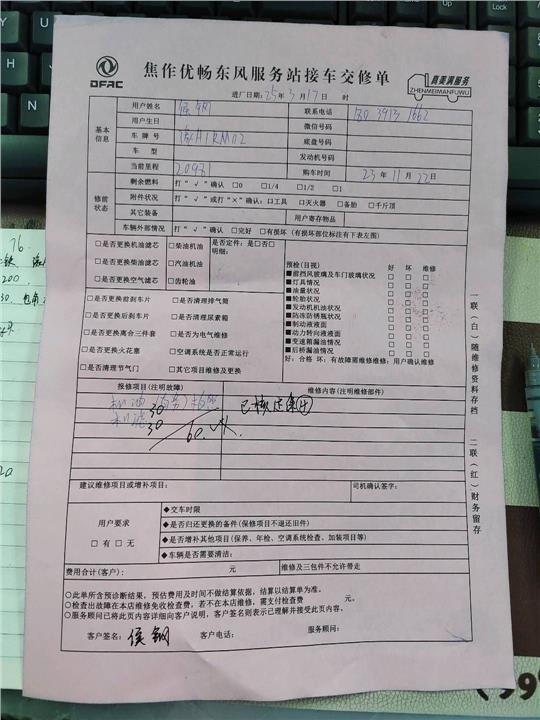 DFAC
焦作优畅东风服务站接车交修单
真美满服务
ZHENMEIMANFUWU
进厂日期：25年3月17日 时
基本信息
用户姓名 侯钢 联系电话
用户生日 微信号码
车牌号 底盘号码
车型 发动机号码
当前里程 购车时间 23年11月22日
修前状态
剩余燃料 打“√”确认 □0 □1/4 □1/2 □1
附件状况 打“√”或打“×”确认：□工具 □灭火器 □备胎 □千斤顶
其它装备 用户寄存物品
车辆外部情况 打“√”确认 □完好 □有损坏（有损坏部位标注有下表左图）
□是否更换机油滤芯 □柴油机油 是否定件：是□否□
明细：
□是否更换柴油滤芯 □汽油机油
□是否更换空气滤芯 □齿轮油
□是否更换前刹车片 □是否清理排气筒
□是否更换后刹车片 □是否清理尿素箱
□是否更换离合三件套 □是否为电气维修
□是否更换火花塞 □空调系统是否正常运行
□是否清理节气门 □其它项目维修及更换
预检(目视) 好 坏 维修
■前挡风玻璃及车门玻璃状况 □ □ □
■灯具情况 □ □ □
■油量状况 □ □ □
■轮胎状况 □ □ □
■发动机机油状况 □ □ □
■防冻防锈瓶状况 □ □ □
■制动液液面 □ □ □
■动力转向液液面 □ □ □
■变速箱漏油情况 □ □ □
■后桥漏油情况 □ □ □
好：合格 坏：有故障需维修维修：用户确认维修
报修项目(注明故障) 维修内容(注明维修部件)
30
30
建议维修项目或增补项目： 司机确认签字：
用户要求
□有 □无
◆交车时限
◆是否归还更换的备件(保修项目不退还旧件)
◆是否增补其他项目(保养、年检、空调系统检查、加装项目等)
◆车辆是否需要清洁：
费用合计(客户)： 元 维修及三包件不允许带走
○此单所含预诊断结果，预估费用及时间不做结算依据，结算以结算单为准。
○检查出故障在本店维修免收检查费，若不在本店维修，需支付检查费 元。
○服务顾问已将此页内容详细向客户说明，客户签名则表示已理解并接受此页内容。
客户签名：侯钢 客户电话： 服务顾问：
一联（白）随维修资料存档 二联（红）财务留存